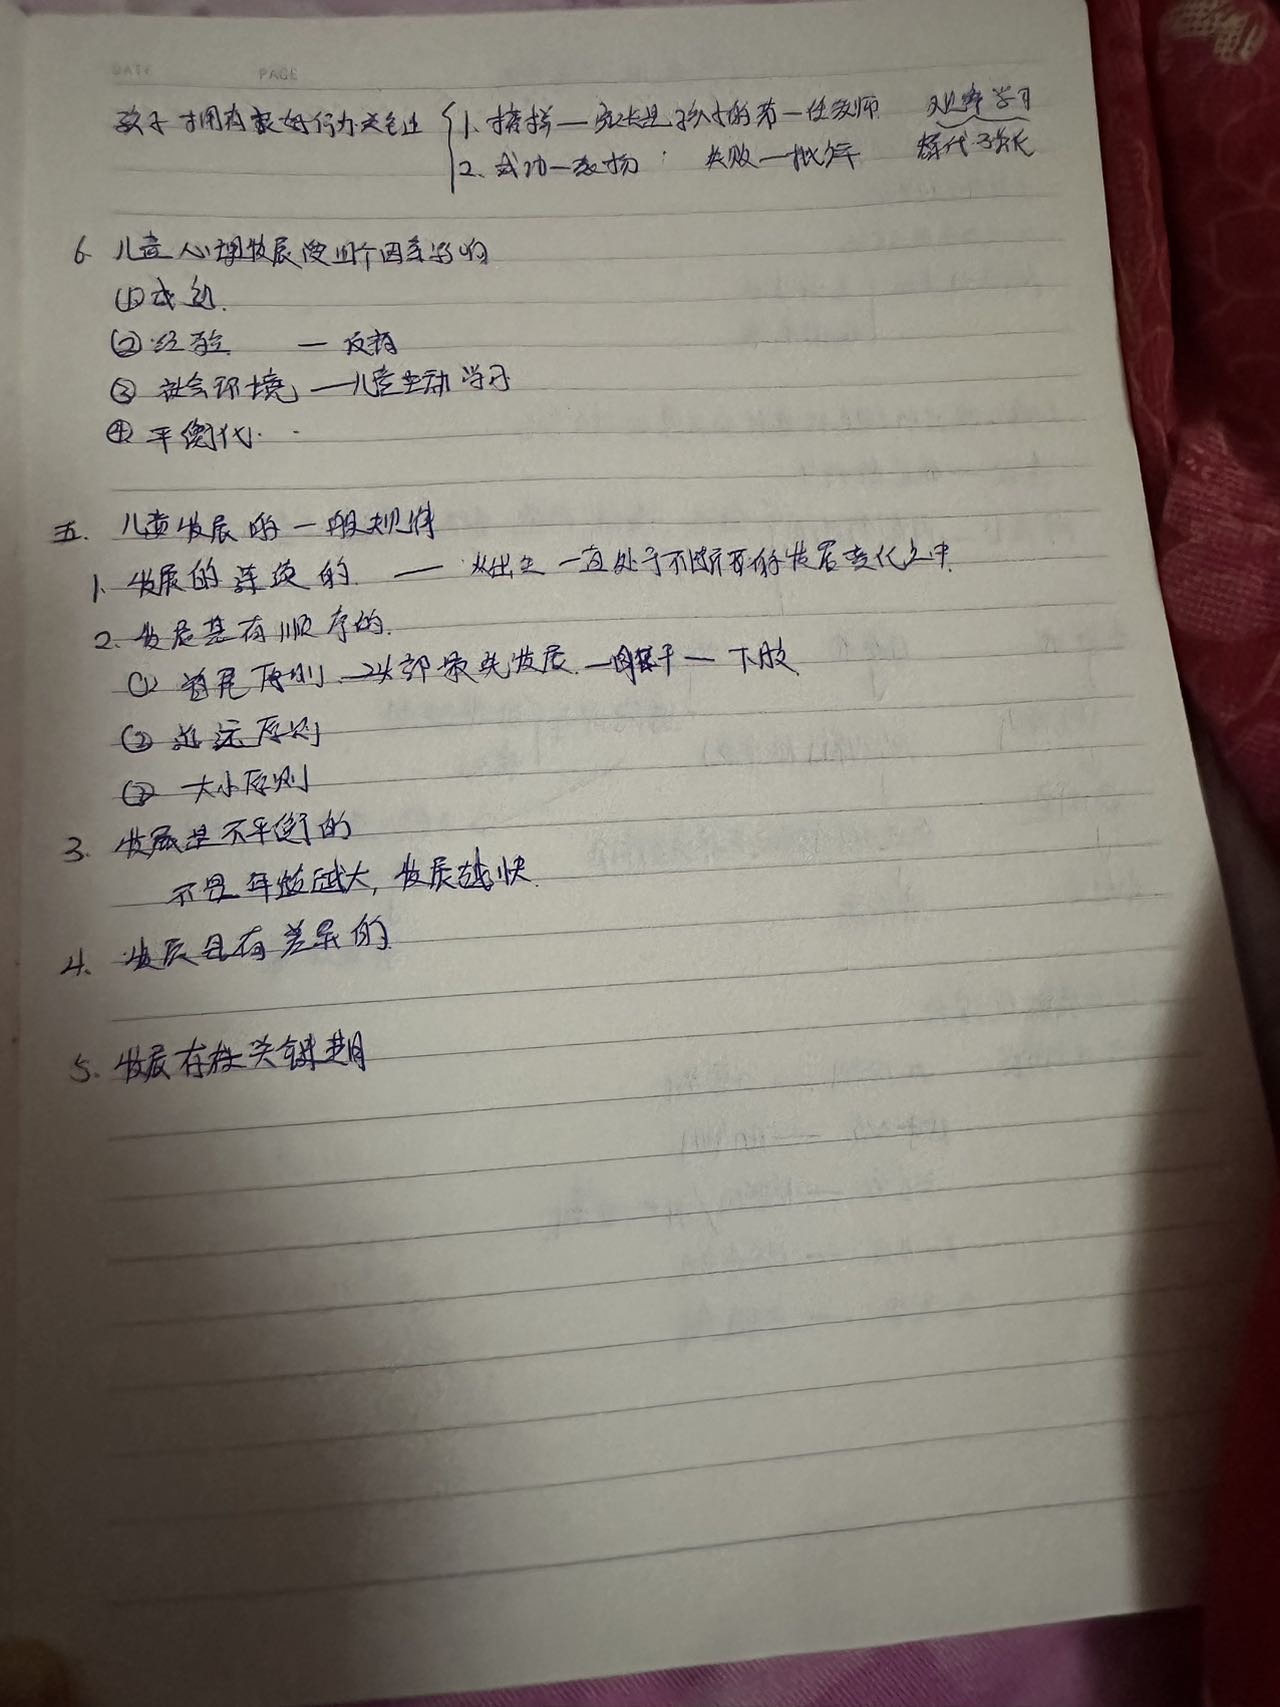 DATE PAGE
孩子拥有良好行为关键 1. 榜样—家长是孩子的第一任教师 观察学习
2. 成功—表扬; 失败—批评 替代
6. 儿童心理发展受四个因素影响
① 成熟.
② 经验 —
③ 社会环境 —儿童主动学习
④ 平衡化.
五. 儿童发展的一般规律
1. 发展的连续的. — 从出生一直处于不断的发展变化之中.
2. 发展是有顺序的.
① 首尾原则. —头部最先发展. —躯干— 下肢
② 近远原则
③ 大小原则
3. 发展是不平衡的
不是年龄越大, 发展越快.
4. 发展具有差异的
5. 发展存在关键期